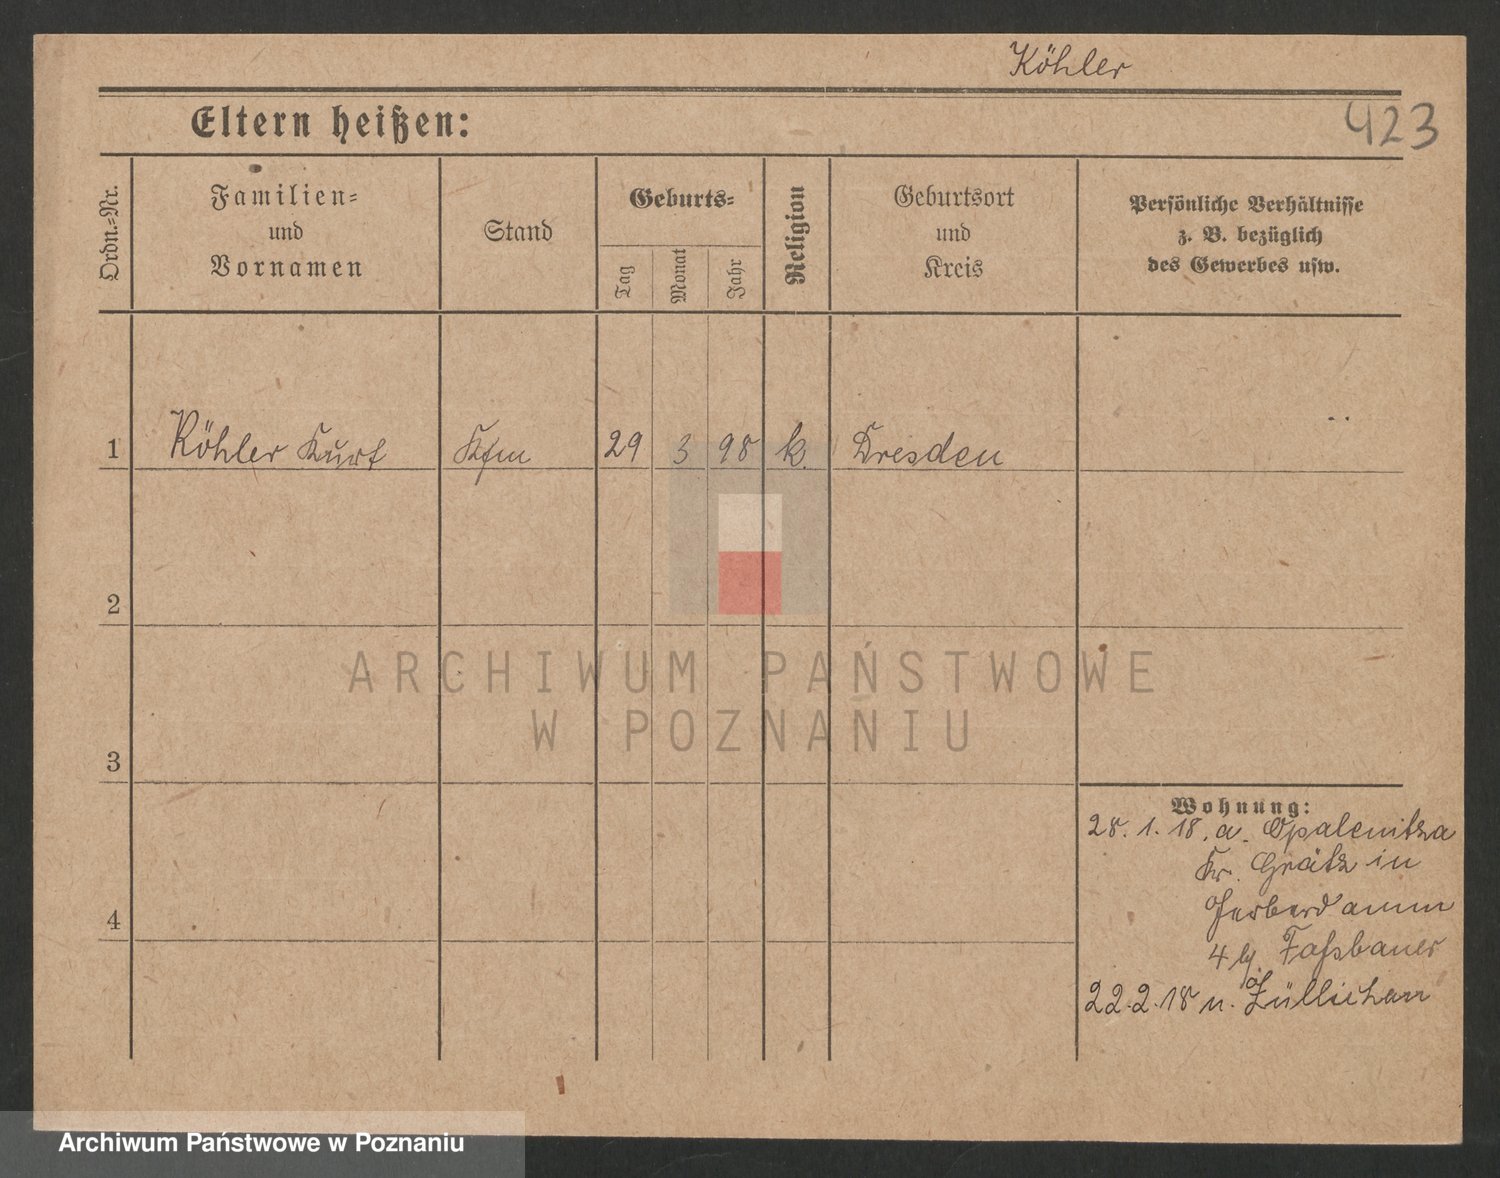 Köhler
423
Eltern heißen:
Ordn.=Nr.
Familien=
und
Vornamen
Stand
Geburts=
Tag
Monat
Jahr
Religion
Geburtsort
und
Kreis
Persönliche Verhältnisse
z. B. bezüglich
des Gewerbes usw.
1 Köhler Kurt Kfm 29 3 98 k. Dresden
2
3
4
ARCHIWUM PAŃSTWOWE
W POZNANIU
Wohnung:
28. 1. 18. a. Opalenitza
Kr. Grätz in
4 bj.
22.2.18 n. Züllichau
Archiwum Państwowe w Poznaniu